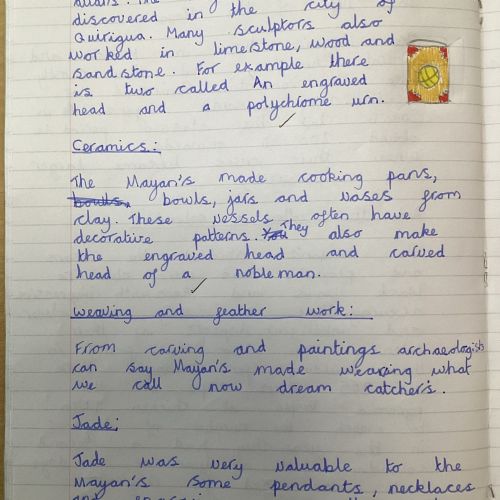 discovered in the city of
Quirigua. Many sculptors also
worked in limestone, wood and
sandstone. For example there
is two called An engraved
head and a polychrome urn.
Ceramics:
The Mayan's made cooking pans,
bowls, bowls, jars and vases from
clay. These vessels often have
decorative patterns. You They also make
the engraved head and carved
head of a nobleman.
weaving and feather work:
From carving and paintings archaeologists
can say Mayan's made wearing what
we call now dream catcher's.
Jade:
Jade was very valuable to the
Mayan's some pendants, necklaces